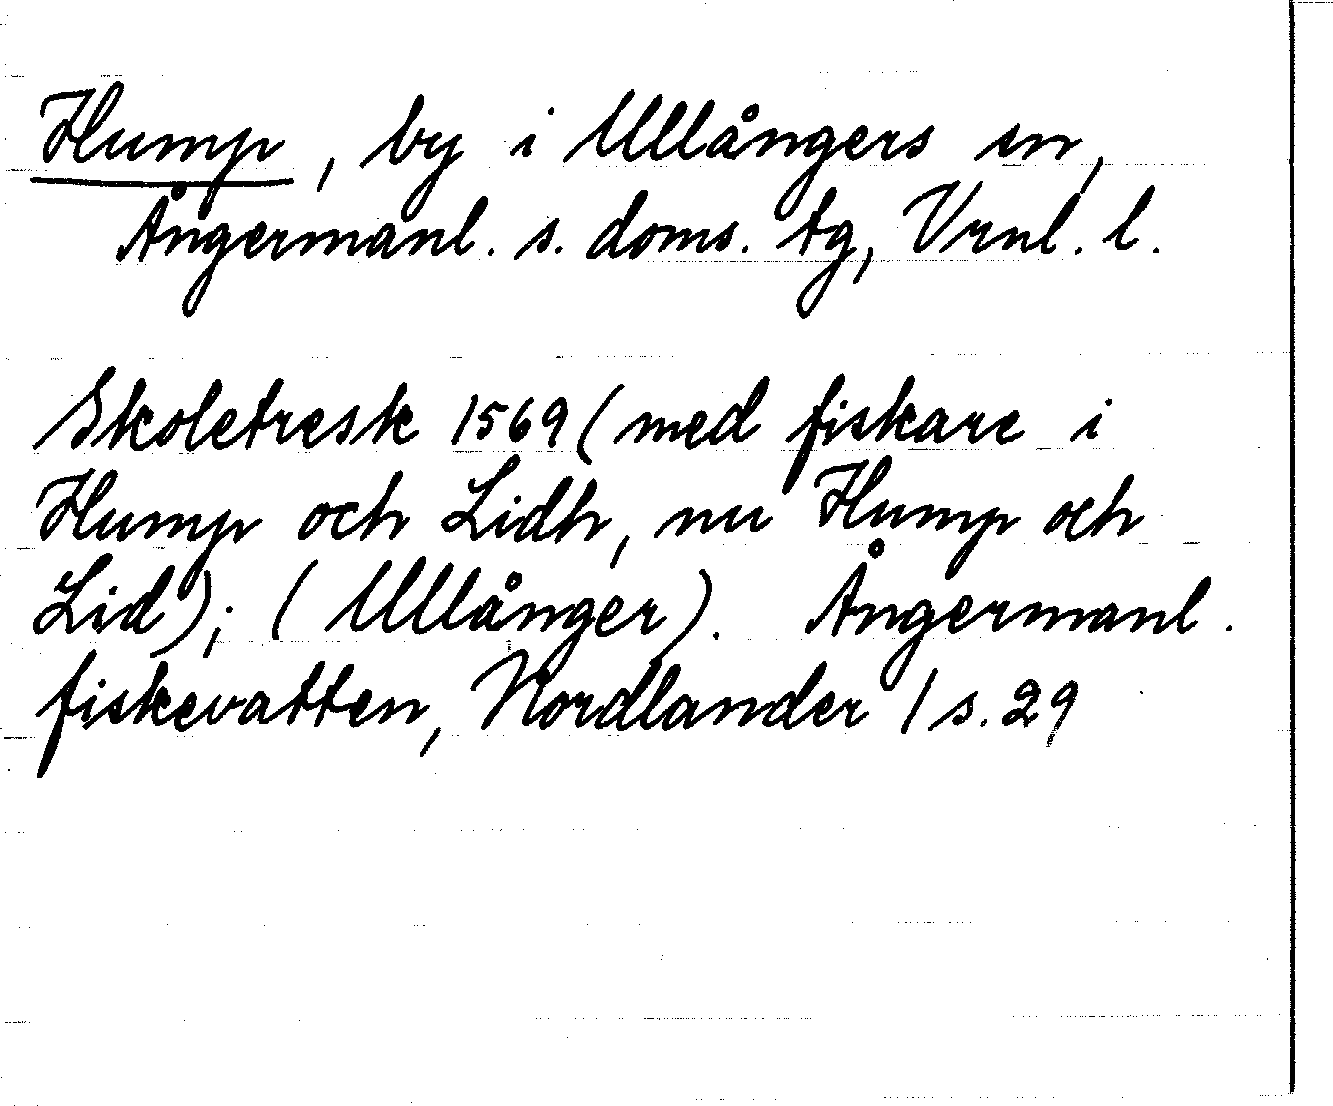 Hump, by i Ullångers sn,
Ångermanl. s. doms. tg, Vrnl. l.
Skoletresk 1569 (med fiskare i
Hump och Lidh, nu Hump och
Lid); (Ullånger). Ångermanl.
fiskevatten, Nordlander / s. 29